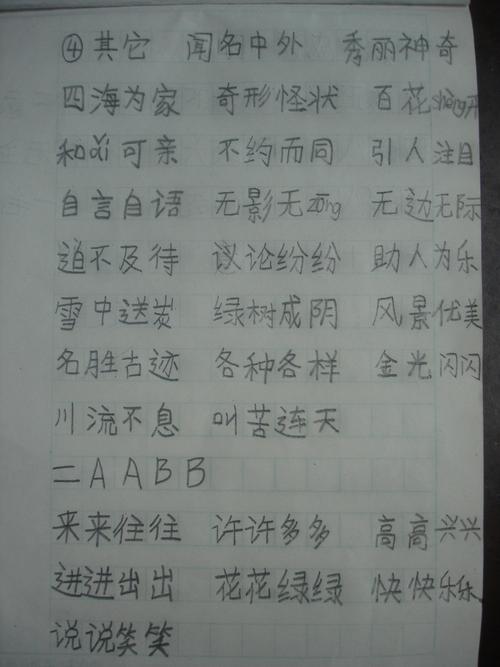 ④其它 闻名中外 秀丽神奇
四海为家 奇形怪状 百花shèng开
和ǎi可亲 不约而同 引人注目
自言自语 无影无zōng 无边无际
迫不及待 议论纷纷 助人为乐
雪中送炭 绿树成阴 风景优美
名胜古迹 各种各样 金光闪闪
川流不息 叫苦连天
二AABB
来来往往 许许多多 高高兴兴
进进出出 花花绿绿 快快乐乐
说说笑笑